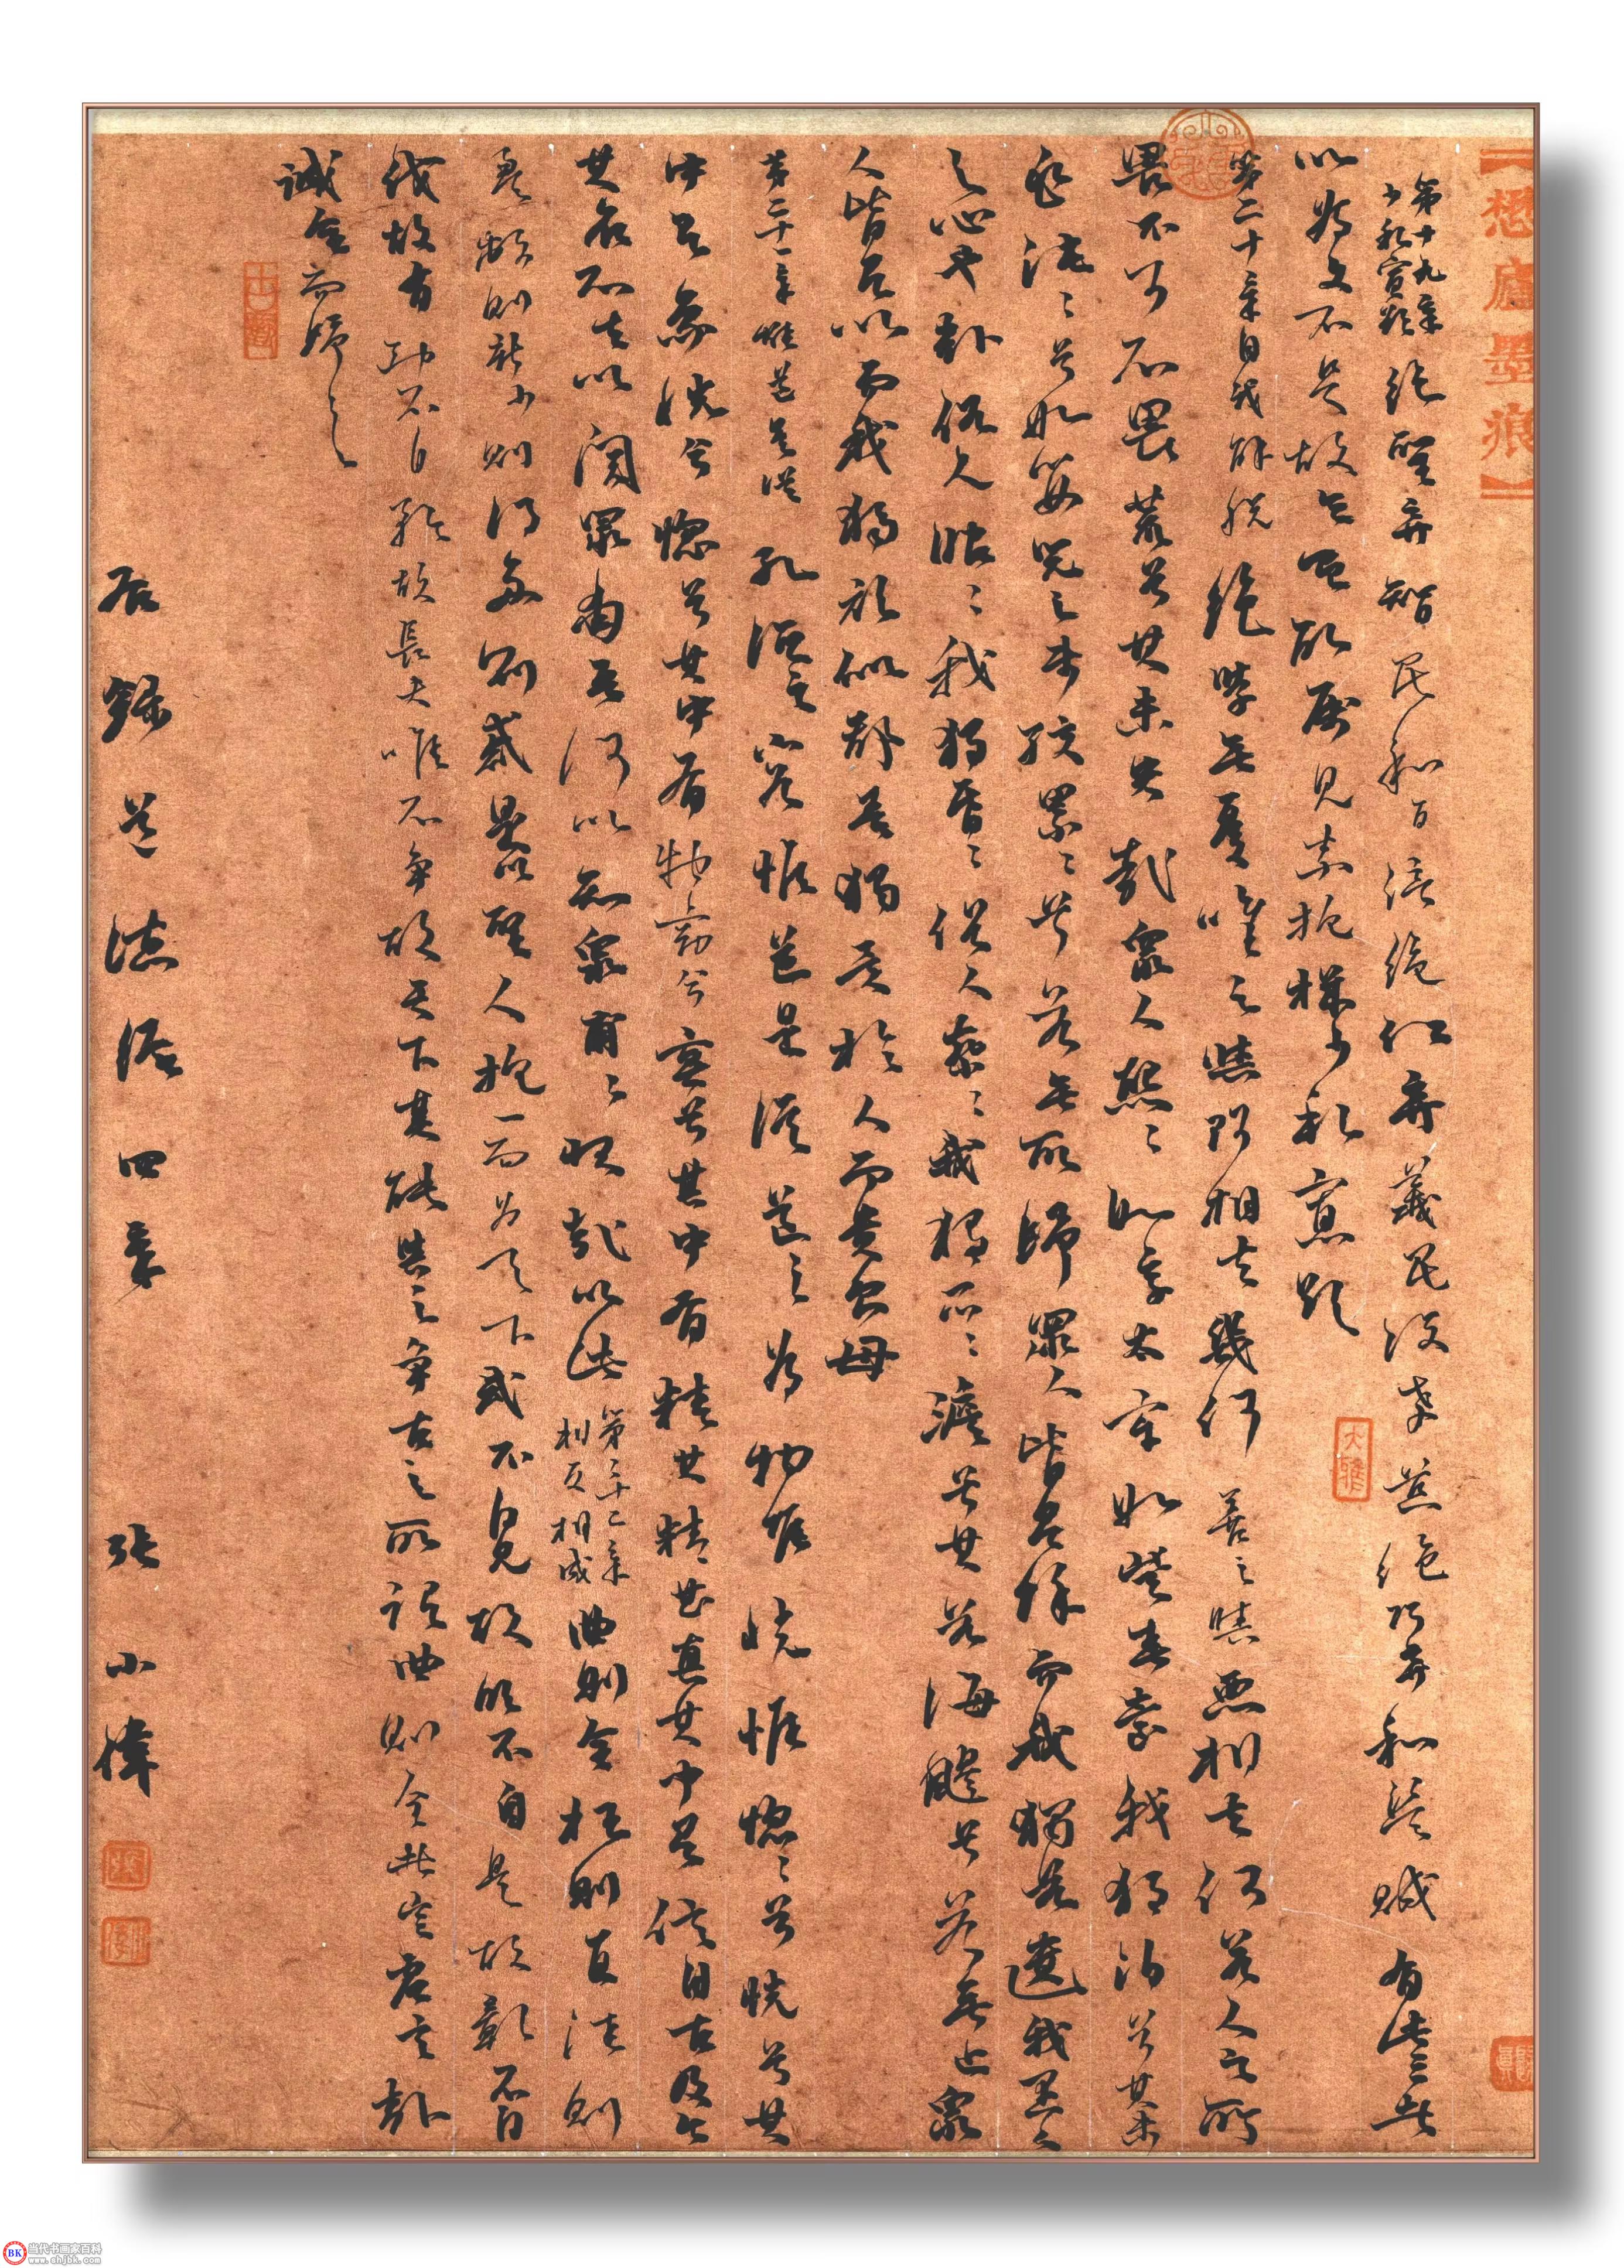 【想廬墨痕】
第十九章
少私寡欲
絕聖弃智民利百倍絕仁弃義民復孝慈絕巧弃利盜賊有此三者
以為文不足故令有所屬見素抱樸少私寡欲
第二十章自我解脫
絕學無憂唯之與阿相去幾何善之與惡相去何若人之所
畏不可不畏荒兮其未央哉眾人熙〻如享太牢如登春臺我獨泊兮其未
兆沌〻兮如嬰兒之未孩累〻兮若無所歸眾人皆有餘而我獨若遺我愚人
之心也哉俗人昭〻我獨昏〻俗人察〻我獨悶〻澹兮其若海飂兮若無止眾
人皆有以而我獨頑似鄙吾獨異於人而貴食母
第二十一章惟道是從
孔德之容惟道是從道之為物惟恍惟惚〻兮恍兮其
中有象恍兮惚兮其中有物窈兮冥兮其中有精其精甚真其中有信自古及今
其名不去以閱眾甫吾何以知眾甫之狀哉以此
第二十二章
相反相成
曲則全枉則直窪則
盈敝則新少則得多則惑是以聖人抱一而為天下式不自見故明不自是故彰不自
伐故有功不自矜故長夫唯不爭故天下莫能與之爭古之所謂曲則全者豈虛言哉
誠全而歸之
右錄道德經四章 張小偉
大雅
BK 当代书画家百科
www.shjbk.com